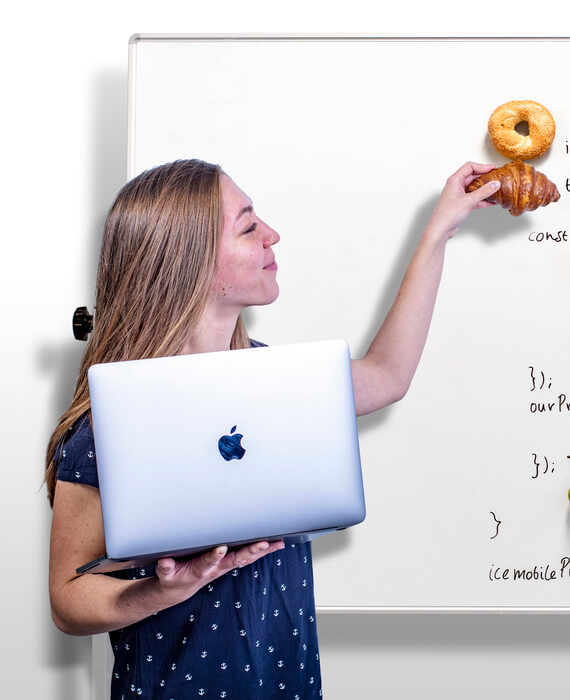 i
t
const
});
ourPr
});
}
ice mobile P